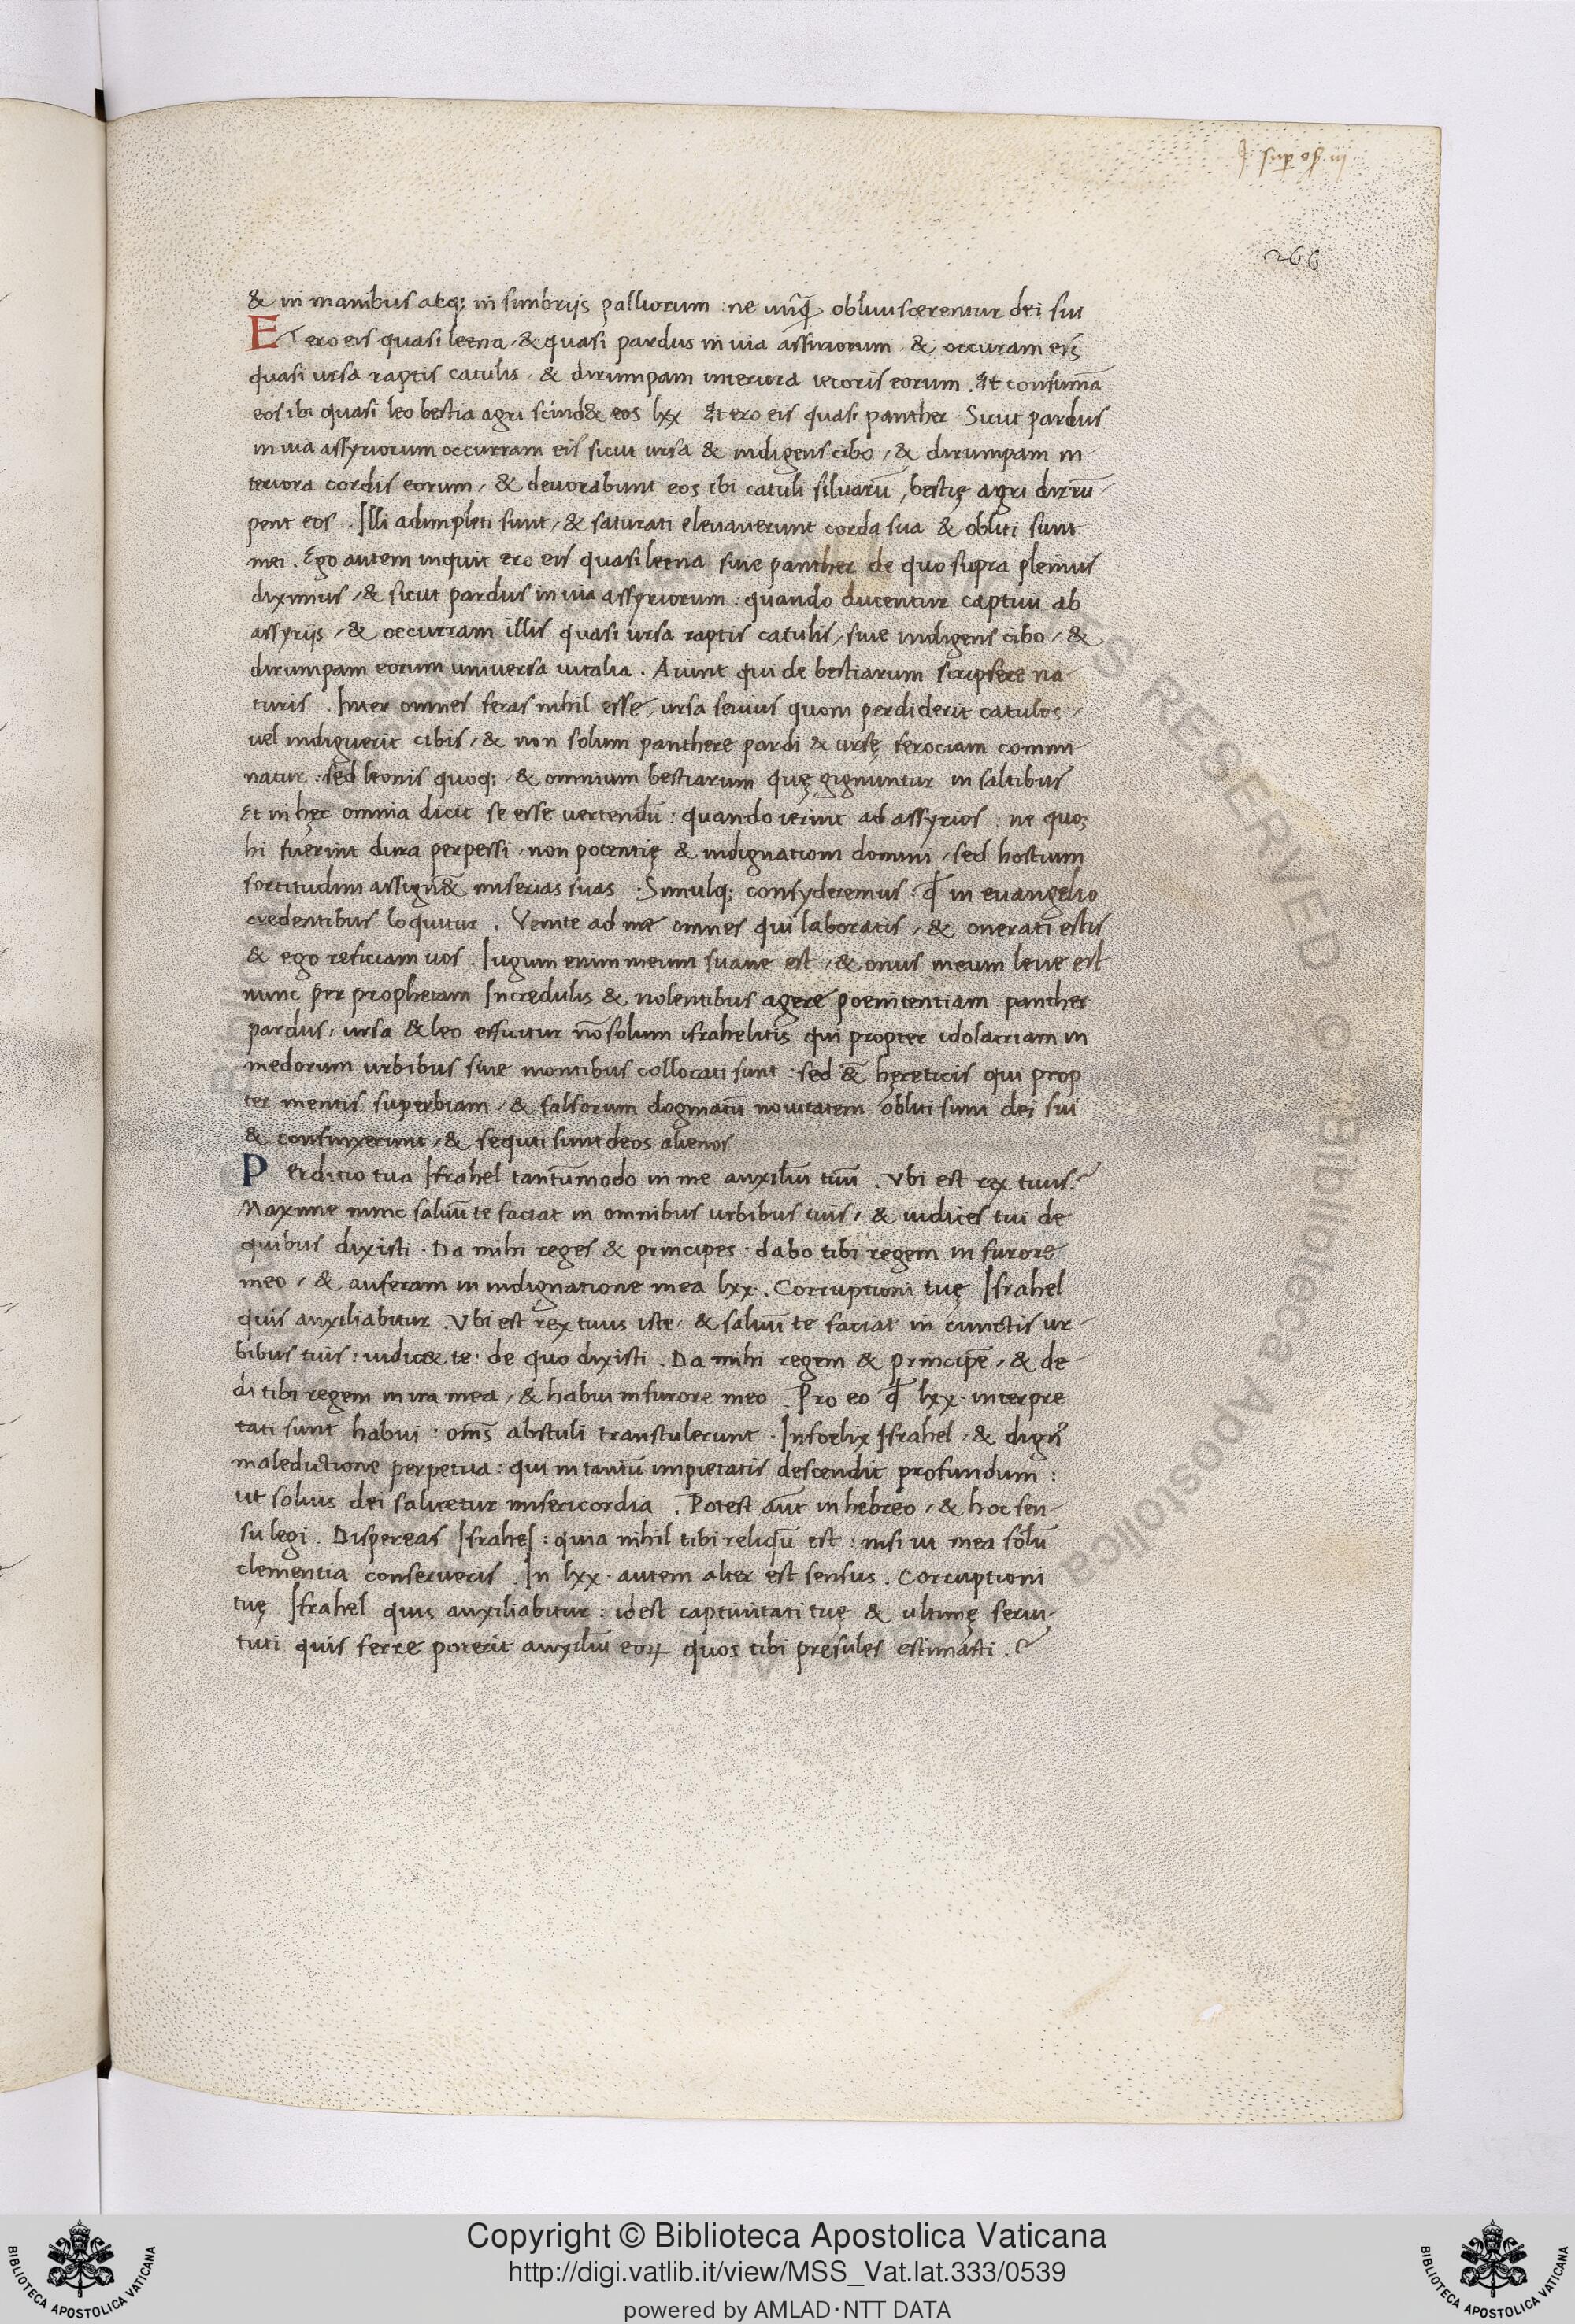 J. sup os. iii
266
& in manibus atq; in fimbrijs palliorum : ne unq̄ obliuiscerentur dei sui
ET ero eis quasi leena, & quasi pardus in uia assiriorum & occuram eis
quasi ursa raptis catulis, & dirumpam interiora iecoris eorum. Et consumā
eos ibi quasi leo bestia agri scind& eos lxx Et ero eis quasi panther. Sicut pardus
in uia assyriorum occurram eis sicut ursa & indigens cibo, & dirumpam in-
teriora cordis eorum, & deuorabunt eos ibi catuli siluarū, bestię agri dirrū-
pent eos. Illi adimpleti sunt, & saturati eleuauerunt corda sua & obliti sunt
mei. Ego autem inquit ero eis quasi leena siue panther de quo supra plenius
diximus, & sicut pardus in uia assyriorum : quando ducentur captiui ab
assyrijs, & occurram illis quasi ursa raptis catulis, siue indigens cibo, &
dirumpam eorum universa uitalia. Aiunt qui de bestiarum scripsere na-
turis. Inter omnes feras nihil esse, ursa seuius quom perdiderit catulos,
uel indiguerit cibis, & non solum panthere pardi & ursę ferociam commi-
natur : sed leonis quoq; & omnium bestiarum quę gignuntur in saltibus
Et in hęc omnia dicit se esse uertendū : quando ierint ad assyrios : ne quoz
hi fuerint dura perpessi, non potentię & indignationi domini, sed hostium
fortitudini assign& miserias suas. Simulq; consyderemus. qđ in euangelio
credentibus loquitur. Venite ad me omnes qui laboratis, & onerati estis
& ego reficiam uos. Iugum enim meum suaue est, & onus meum leue est
nunc per prophetam Incredulis & nolentibus agere poenitentiam panther
pardus, ursa & leo efficitur nō solum israhelitis qui propter idolatriam in
medorum urbibus siue montibus collocati sunt : sed &̄ hęreticis qui prop
ter mentis superbiam, & falsorum dogmatū nouitatem obliti sunt dei sui
& confinxerunt, & sequti sunt deos alienos
Perditio tua Israhel tantūmodo in me auxiliū tuū. Vbi est rex tuus?
Maxime nunc saluū te faciat in omnibus urbibus tuis, & iudices tui de
quibus dixisti. Da mihi reges & principes : dabo tibi regem in furore
meo, & auferam in indignatione mea lxx. Corruptioni tuę Israhel
quis auxiliabitur. Vbi est rex tuus iste, & saluū te faciat in cunctis ur-
bibus tuis : iudic& te : de quo dixisti. Da mihi regem & principē, & de-
di tibi regem in ira mea, & habui in furore meo. Pro eo qđ lxx. interpre
tati sunt habui : om̄s abstuli transtulerunt. Infoelix Israhel, & dign9
maledictione perpetua : qui in tantū impietatis descendit profundum :
ut solius dei saluetur misericordia. Potest aūt in hebreo, & hoc sen-
su legi. Dispereas Israhel : quia nihil tibi reliquū est : nisi ut mea solū
clementia conserueris. In lxx. autem alter est sensus. Corruptioni
tuę Israhel quis auxiliabitur : idest captiuitati tuę & ultimę serui-
tuti quis ferre poterit auxiliū eoꝝ quos tibi presules estimasti.?
Copyright © Biblioteca Apostolica Vaticana
http://digi.vatlib.it/view/MSS_Vat.lat.333/0539
powered by AMLAD·NTT DATA
BIBLIOTECA APOSTOLICA VATICANA
BIBLIOTECA APOSTOLICA VATICANA